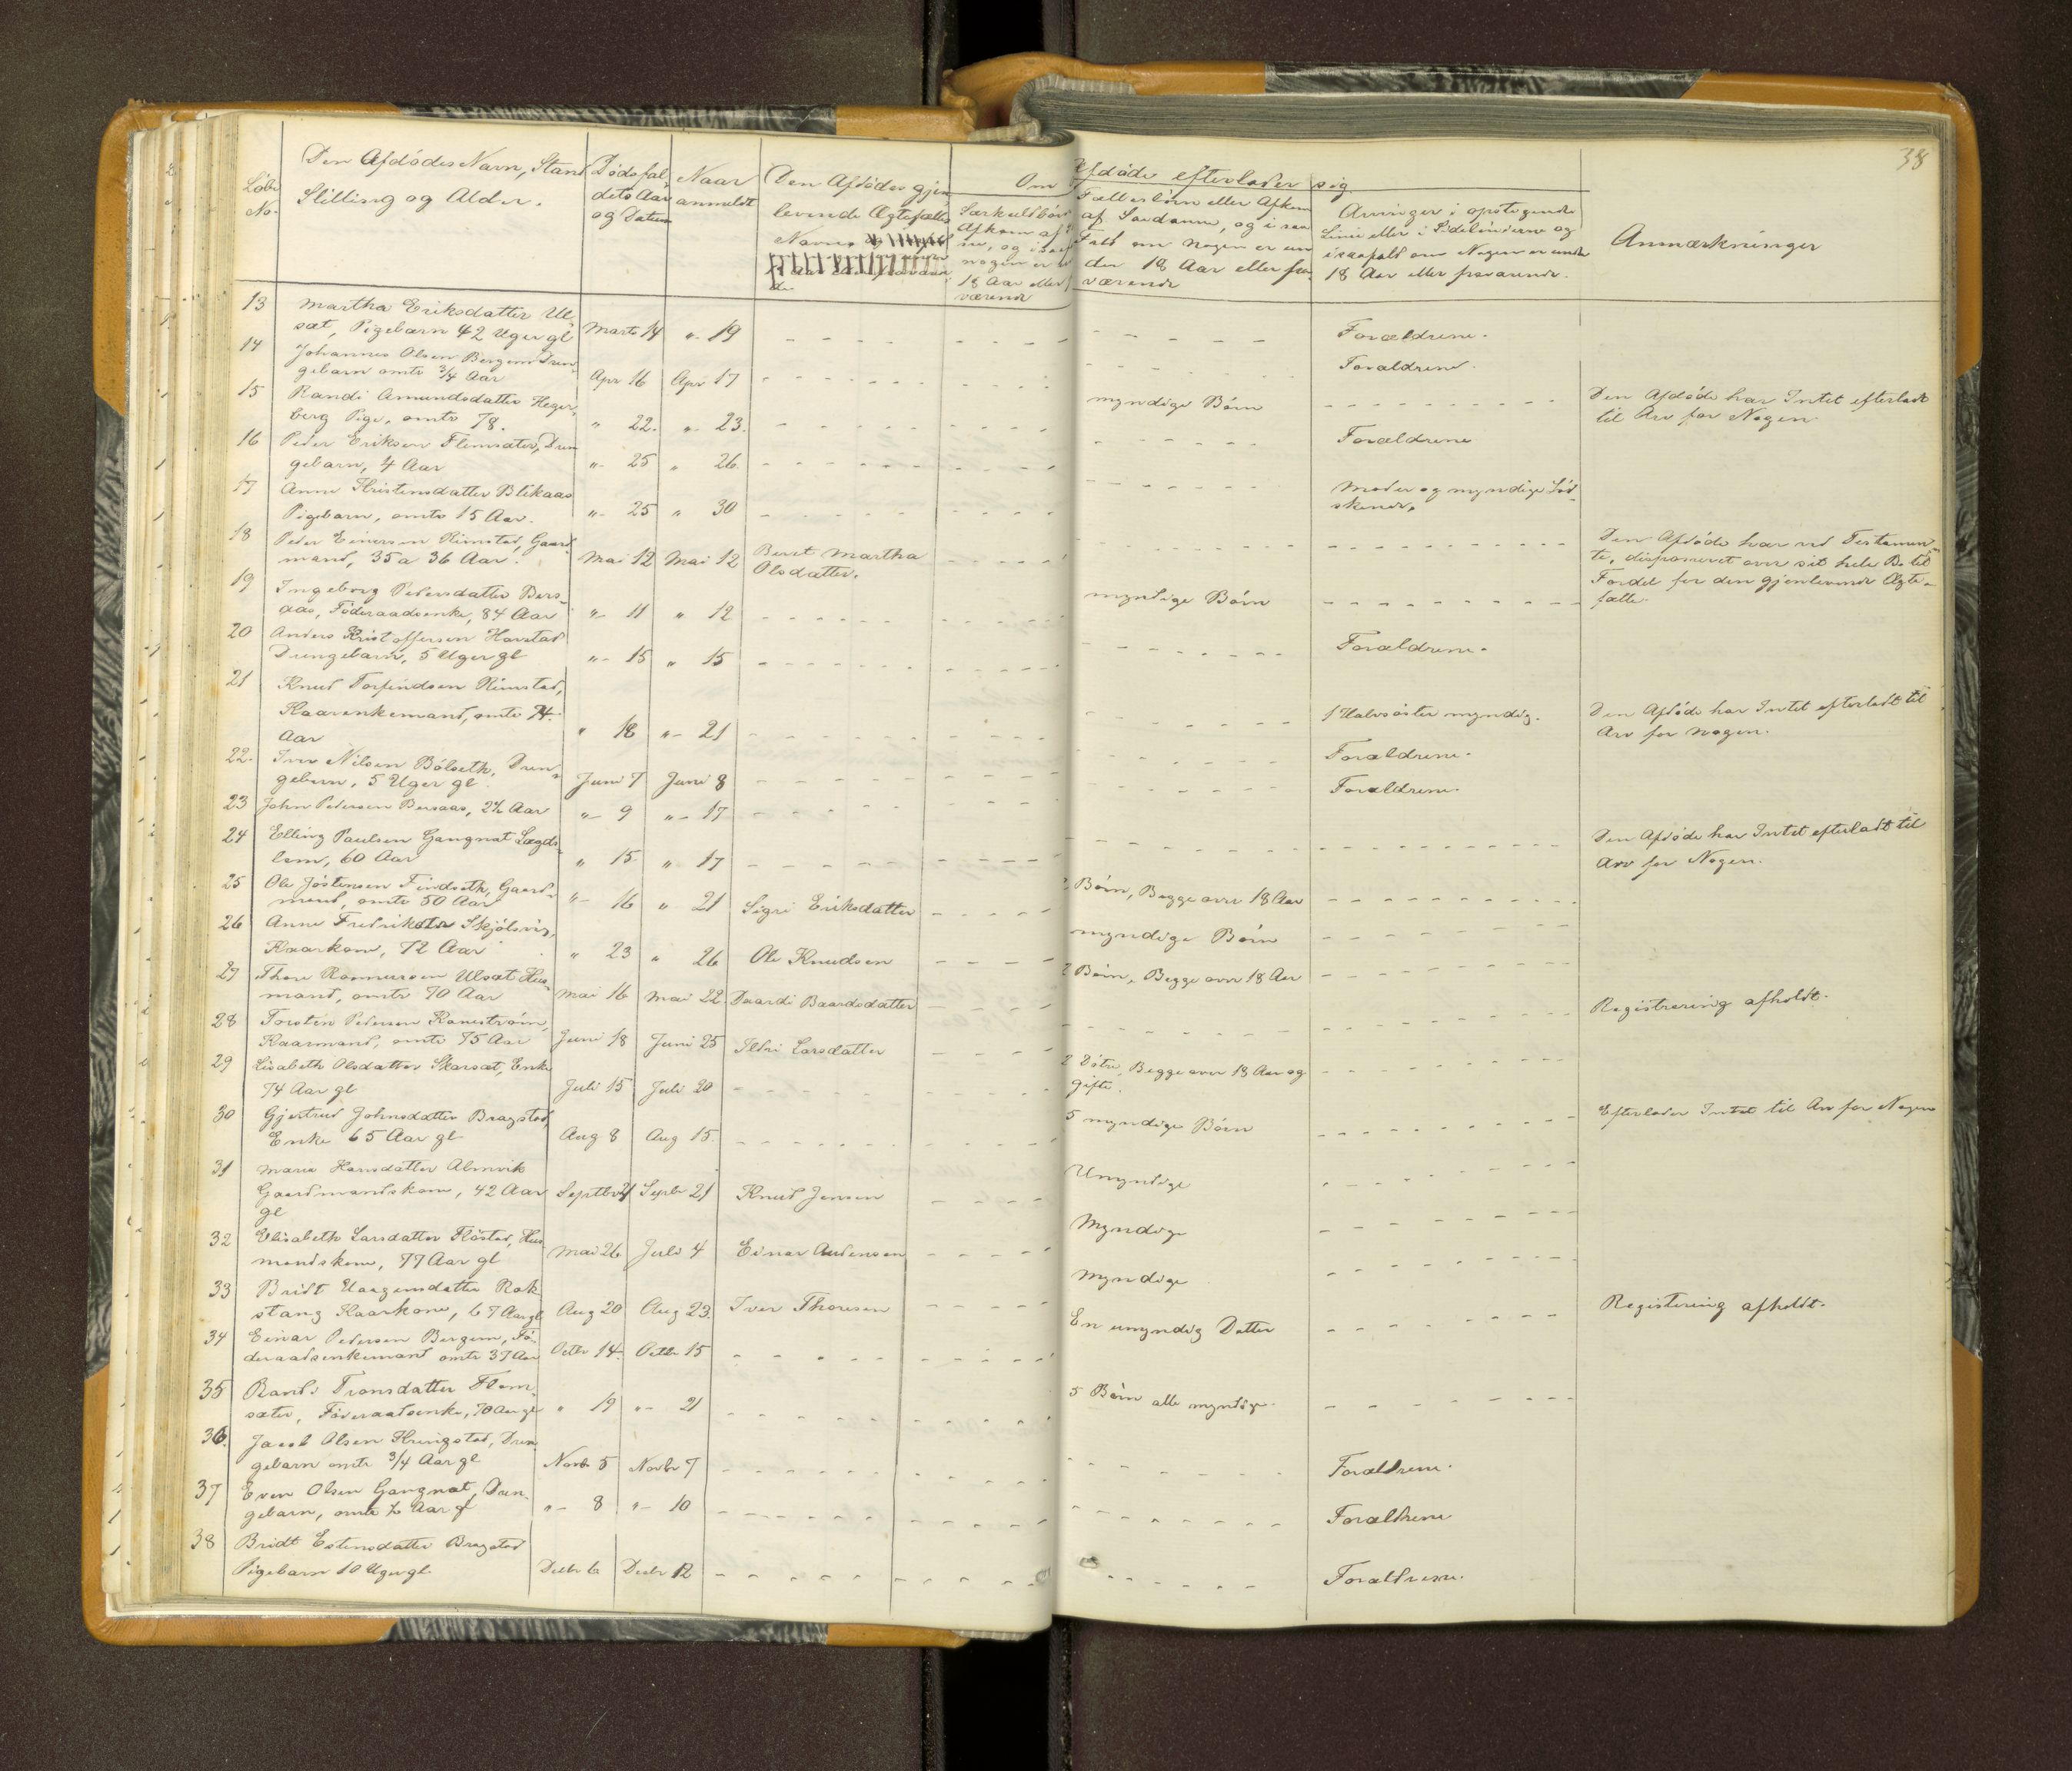 38
Løbe No.
Den Afdødes Navn, Stand
Stilling og Alder.
Dødsfal-
dets Aar
og Datum
Naar
anmeldt
Den Afdødes gjen-
levende Ægtefælles
Navn
Om
Afdøde efterlader sig
Særkuldbørn
Afkom af
nogen er
18 Aar eller
værende
Fællesbørn eller Afkom
af Saadanne, og i saa
Fald om Nogen er un-
der 18 Aar eller fra-
værende
Arvinger i opstigende
Linie eller i Sidelinierne og
i saafald om Nogen er under
18 Aar eller fraværende.
Anmærkninger
13 Martha Eriksdatter Ul-
sæt, Pigebarn 42 Uger gl Marts 14 " 19 Forældrene.
14 Johannes Olsen Bergem Dren-
gebarn omtr 3/4 Aar Apr 16 Apr 17 Forældrene.
15 Randi Amundsdatter Heger-
berg Pige, omtr 78. " 22. " 23. myndige Børn Den Afdøde har Intet efterladt
til Arv for Nogen
16 Peder Eriksen Flemsæter, Dren
gebarn, 4 Aar " 25 " 26. Forældrene
17 Anne Kristensdatter Blikaas
Pigebarn, omtr 15 Aar. " 25 " 30 Moder og myndige Sød-
skende.
18 Peder Einersen Rimstad, Gaard-
mand, 35 a 36 Aar. Mai 12 Mai 12 Beret Martha
Olsdatter. Den Afdøde har ved Testamen-
te, disponeret over sit hele Bo til
Fordel for den gjenlevende Ægte-
fælle.
19 Ingeborg Pedersdatter Bers-
aas, Føderaadsenke, 84 Aar " 11 " 12 myndige Børn
20 Anders Kristoffersen Harstad
Drengebarn, 5 Uger gl " 15 " 15 Forældrene.
21 Knud Torfindsen Rimstad,
Kaarenkemand, omtr 74.
Aar " 18 " 21 1 Halvsøster myndig. Den Afdøde har Intet efterladt til
Arv for Nogen.
22. Iver Nilsen Bølseth, Dren-
gebarn, 5 Uger gl. Juni 7 Juni 8 Forældrene.
23 John Pedersen Bersaas, 2½ Aar " 9 " 17 Forældrene.
24 Elling Paulsen Gangnat Lægds-
lem, 60 Aar " 15. " 17 Den Afdøde har Intet efterladt til
Arv for Nogen.
25 Ole Jøstensen Findseth, Gaard-
mand, omtr 50 Aar " 16 " 21 Sigri Eriksdatter 2 Børn, Begge over 18 Aar
26 Anne Fredriksdtr Skjølsvig,
Kaarkone, 72 Aar " 23 " 26 Ole Knudsen myndige Børn
27 Thore Rasmussen Ulsæt Hus-
mand, omtr 70 Aar Mai 16 Mai 22 Baardsdatter 2 Børn, Begge over 18 Aar
28 Torsten Pedersen Ranestrøm,
Kaarmand, omtr 75 Aar Juni 18 Juni 25 Ildri Larsdatter Registrering afholdt.
29 Lisabeth Olsdatter Skarsæt, Enke
74 Aar gl Juli 15 Juli 20 2 Døtre, Begge over 18 Aar og
gifte.
30 Gjertrud Johnsdatter Bragstad,
Enke 65 Aar gl Aug 8 Aug 15. 5 myndige Børn Efterlader Intet til Arv for Nogen
31 Maria Hansdatter Almvik
Gaardmandskone, 42 Aar
gl Septbr 21 Septr 21 Knud Jensen Umyndige
32 Elisabeth Larsdatter Fløstad, Hus-
mandskone, 77 Aar gl Mai 26 Juli 4 Einar Andersen Myndige
33 Bridt Haagensdatter Rok-
stang Kaarkone, 67 Aar gl Aug 20 Aug 23. Iver Thoresen Myndige
34 Einar Pedersen Bergem, Fø-
deraadsenkemand omtr 37 Aar Octbr 14. Octbr 15 En umyndig Datter Registering afholdt.
35 Randi Tronsdatter Flem-
sæter, Føderaadsenke, 70 Aar gl " 19 " 21 5 Børn alle myndige.
36. Jacob Olsen Kringstad, Dren
gebarn omtr 3/4 Aar gl Novbr 5 Novbr 7 Forældrene.
37 Even Olsen Gangnat, Dren-
gebarn, omtr ½ Aar gl " 8 " 10 Forældrene
38 Bridt Estensdatter Bragstad
Pigebarn 10 Uger gl. Decbr 6 Decbr 12 Forældrene.